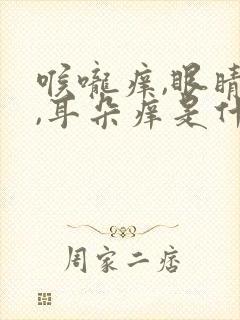 喉嚨痒,眼睛
,耳朵痒是什
周家二痞